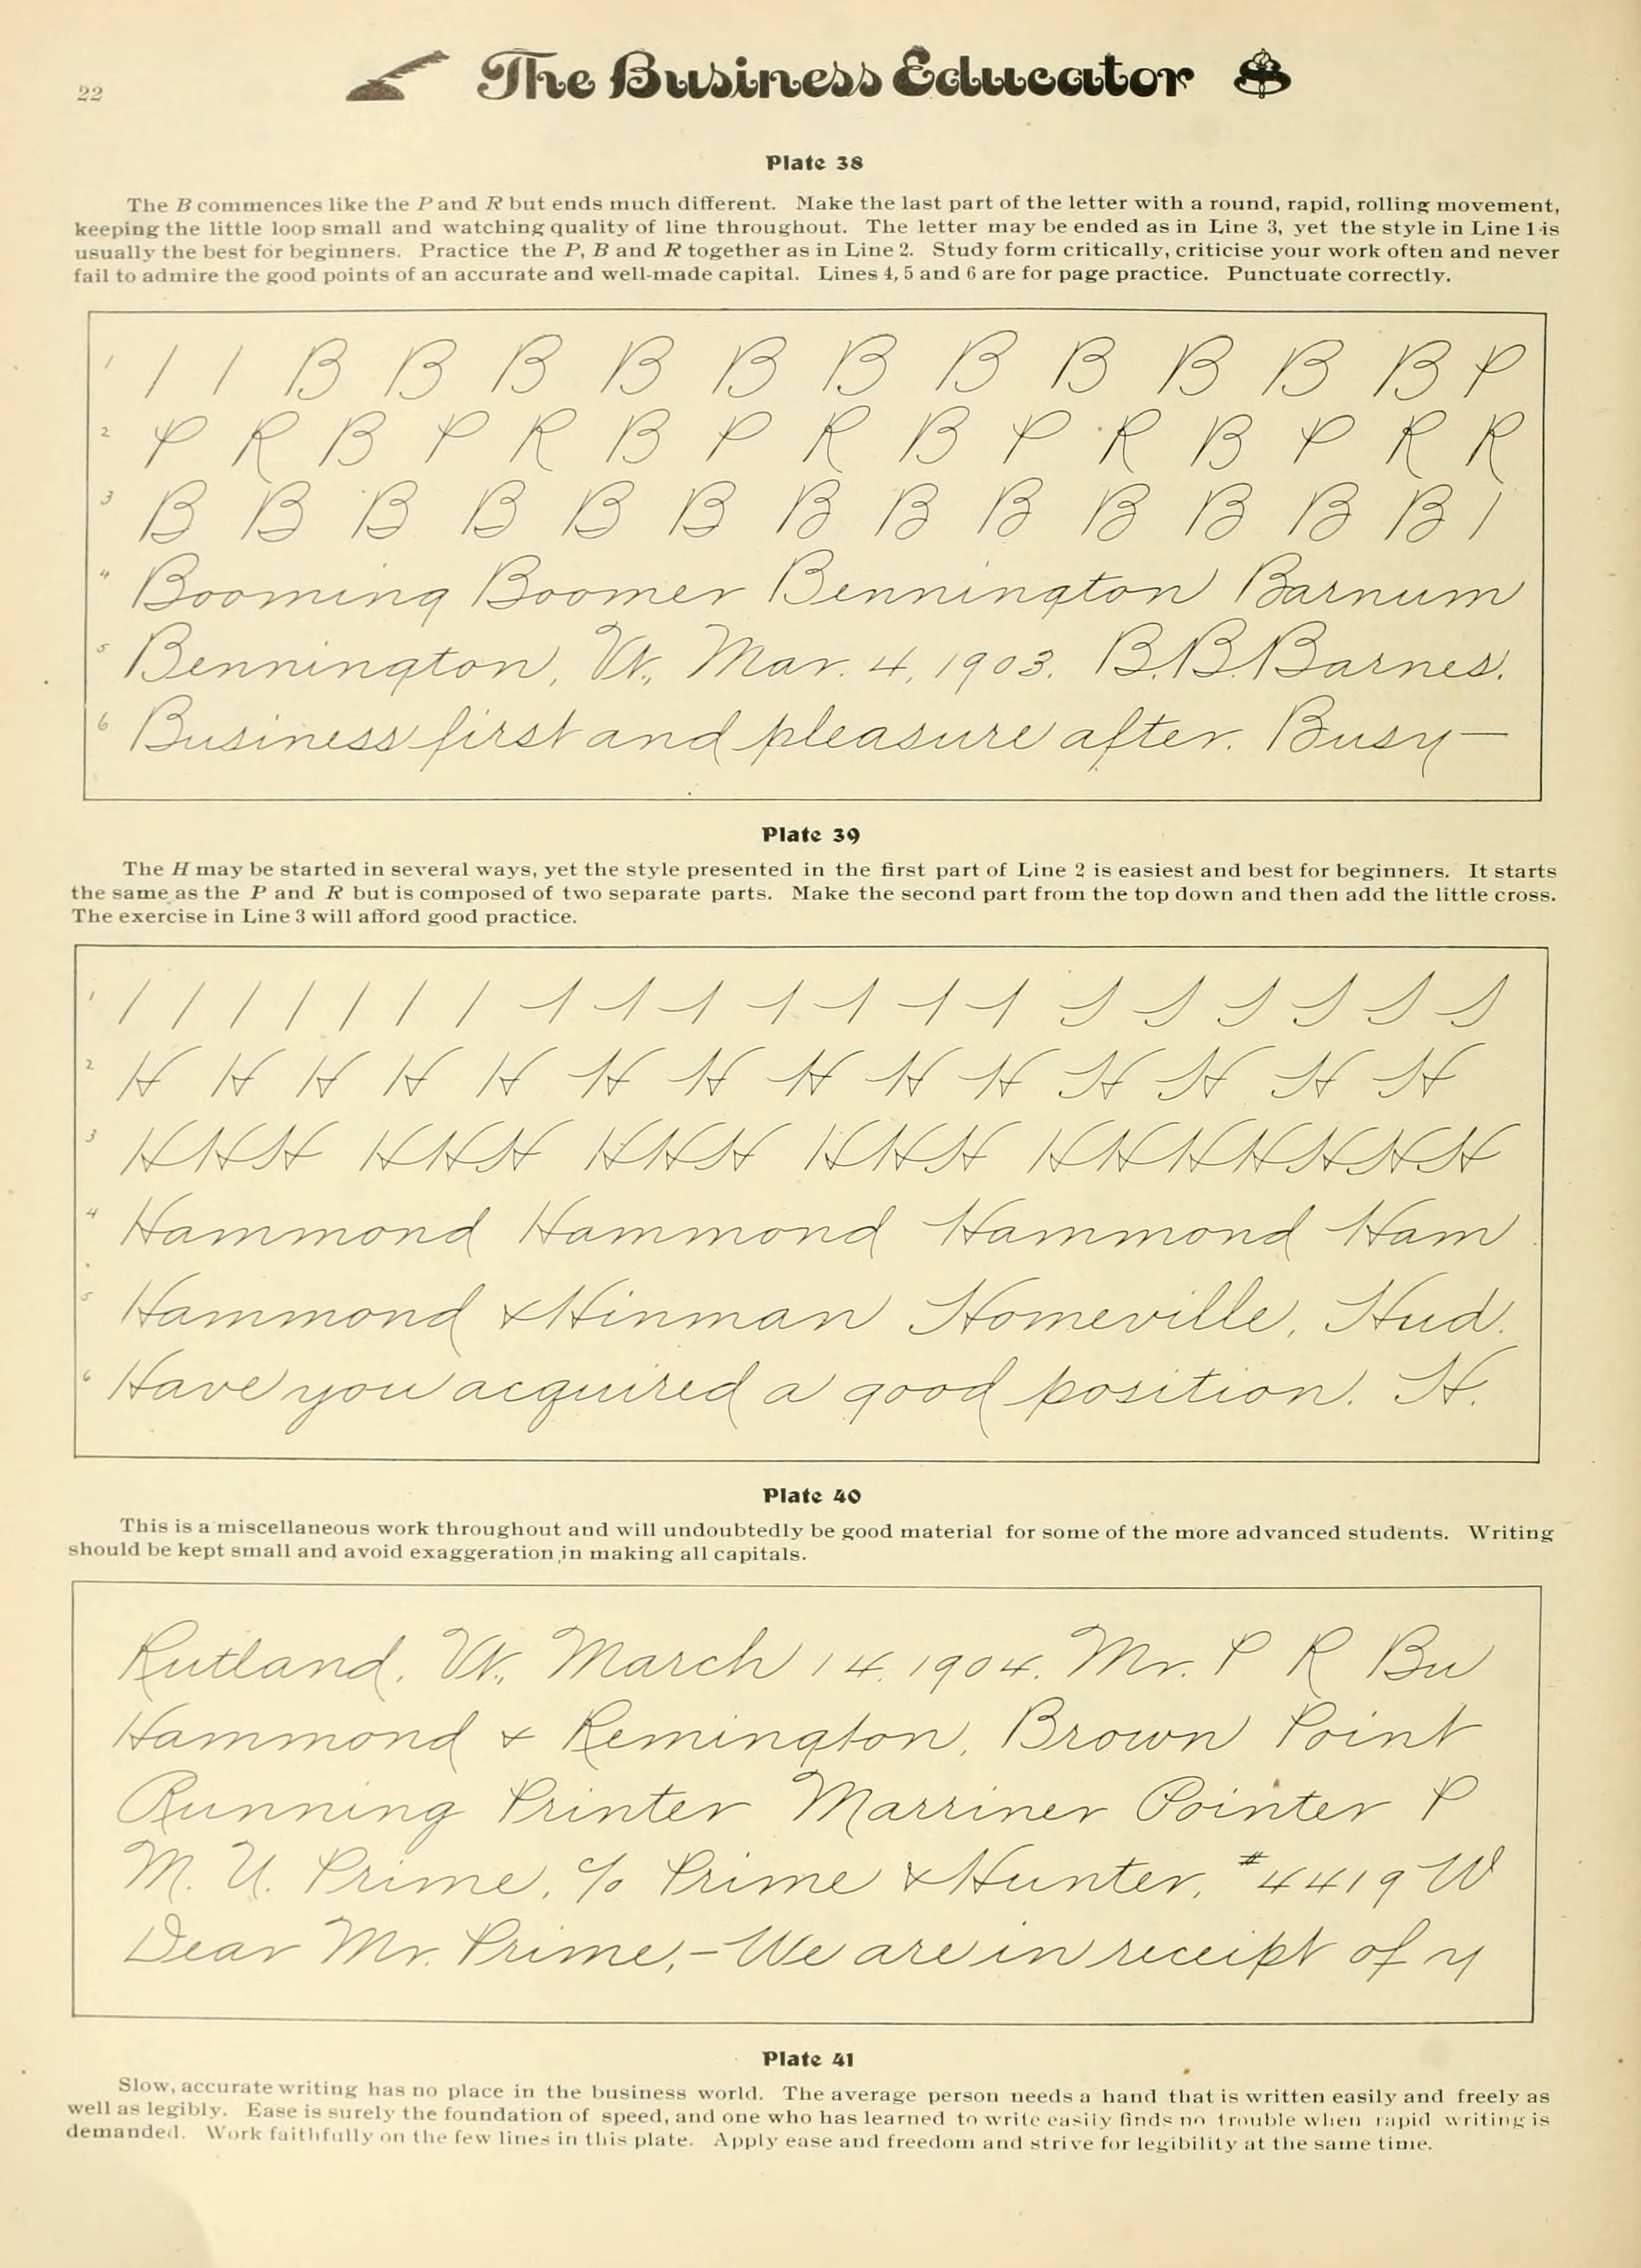 22
The Business Educator
Plate 38
The B commences like the P and R but ends much different. Make the last part of the letter with a round, rapid, rolling movement,
keeping the little loop small and watching quality of line throughout. The letter may be ended as in Line 3, yet the style in Line 1 is
usually the best for beginners. Practice the P, B and R together as in Line 2. Study form critically, criticise your work often and never
fail to admire the good points of an accurate and well-made capital. Lines 4, 5 and 6 are for page practice. Punctuate correctly.
1 / / B B B B B B B B B B B P
2 P R B P R B P R B P R B P R R
3 B B B B B B B B B B B B B /
4 Booming Boomer Bennington Barnum
5 Bennington, Vt., Mar. 4, 1903. B.B.Barnes.
6 Business first and pleasure after. Busy—
Plate 39
The H may be started in several ways, yet the style presented in the first part of Line 2 is easiest and best for beginners. It starts
the same as the P and R but is composed of two separate parts. Make the second part from the top down and then add the little cross.
The exercise in Line 3 will afford good practice.
1 / / / / / / /
2 H H H H H H H H H H H H H H
3 HHH HHH HHH HHH HHHHHHH
4 Hammond Hammond Hammond Ham
5 Hammond & Hinman Homeville, Hud.
6 Have you acquired a good position. H.
Plate 40
This is a miscellaneous work throughout and will undoubtedly be good material for some of the more advanced students. Writing
should be kept small and avoid exaggeration in making all capitals.
Rutland, Vt., March 14, 1904. Mr. P R Bu
Hammond & Remington, Brown Point
Running Printer Marriner Pointer P
M. U. Prime, c/o Prime & Hunter, #4419 W
Dear Mr. Prime,- We are in receipt of y
Plate 41
Slow, accurate writing has no place in the business world. The average person needs a hand that is written easily and freely as
well as legibly. Ease is surely the foundation of speed, and one who has learned to write easily finds no trouble when rapid writing is
demanded. Work faithfully on the few lines in this plate. Apply ease and freedom and strive for legibility at the same time.